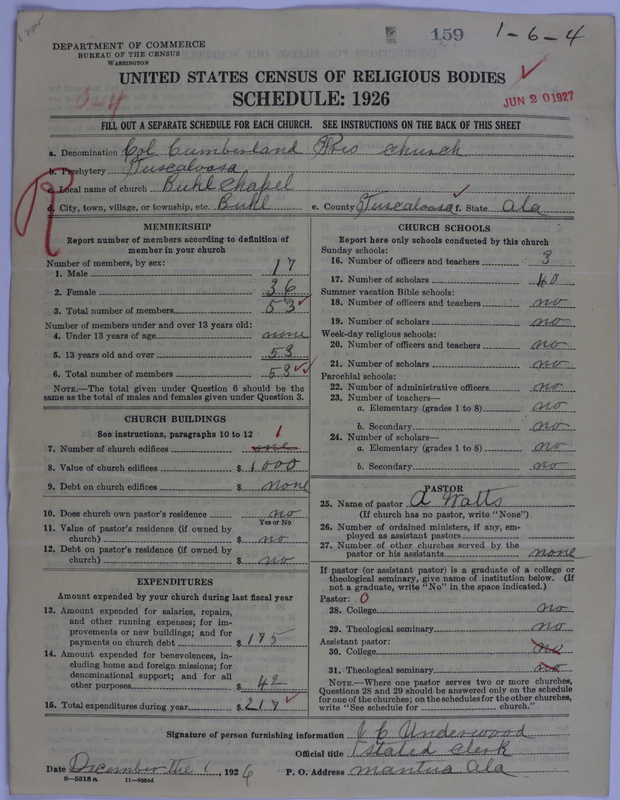 159 1-6-4
DEPARTMENT OF COMMERCE
BUREAU OF THE CENSUS
WASHINGTON
UNITED STATES CENSUS OF RELIGIOUS BODIES
SCHEDULE: 1926
JUN 20 1927
FILL OUT A SEPARATE SCHEDULE FOR EACH CHURCH. SEE INSTRUCTIONS ON THE BACK OF THIS SHEET
a. Denomination Col Cumberland Pres church
b. Presbytery Tuscaloosa
c. Local name of church Buhl Chapel
d. City, town, village, or township, etc. Buhl e. County Tuscaloosa f. State Ala
MEMBERSHIP
Report number of members according to definition of
member in your church
Number of members, by sex:
1. Male 17
2. Female 36
3. Total number of members 53
Number of members under and over 13 years old:
4. Under 13 years of age none
5. 13 years old and over 53
6. Total number of members 53
NOTE.—The total given under Question 6 should be the
same as the total of males and females given under Question 3.
CHURCH BUILDINGS
See instructions, paragraphs 10 to 12
7. Number of church edifices one 1
8. Value of church edifices $ 1000
9. Debt on church edifices $ none
10. Does church own pastor's residence no
Yes or No
11. Value of pastor's residence (if owned by
church) $ no
12. Debt on pastor's residence (if owned by
church) $ no
EXPENDITURES
Amount expended by your church during last fiscal year
13. Amount expended for salaries, repairs,
and other running expenses; for im-
provements or new buildings; and for
payments on church debt $ 175
14. Amount expended for benevolences, in-
cluding home and foreign missions; for
denominational support; and for all
other purposes $ 42
15. Total expenditures during year $ 217
CHURCH SCHOOLS
Report here only schools conducted by this church
Sunday schools:
16. Number of officers and teachers 3
17. Number of scholars 40
Summer vacation Bible schools:
18. Number of officers and teachers no
19. Number of scholars no
Week-day religious schools:
20. Number of officers and teachers no
21. Number of scholars no
Parochial schools:
22. Number of administrative officers no
23. Number of teachers—
a. Elementary (grades 1 to 8) no
b. Secondary no
24. Number of scholars—
a. Elementary (grades 1 to 8) no
b. Secondary no
PASTOR
25. Name of pastor A Watts
(If church has no pastor, write "None")
26. Number of ordained ministers, if any, em-
ployed as assistant pastors
27. Number of other churches served by the
pastor or his assistants none
If pastor (or assistant pastor) is a graduate of a college or
theological seminary, give name of institution below. (If
not a graduate, write "No" in the space indicated.)
Pastor: 0
28. College no
29. Theological seminary no
Assistant pastor:
30. College no
31. Theological seminary no
NOTE.—Where one pastor serves two or more churches,
Questions 28 and 29 should be answered only on the schedule
for one of the churches; on the schedules for the other churches,
write "See schedule for church."
Signature of person furnishing information J C Underwood
Official title Stated Clerk
Date December the 1, 1926 P. O. Address Mantua Ala
8-5518a 11-9264d